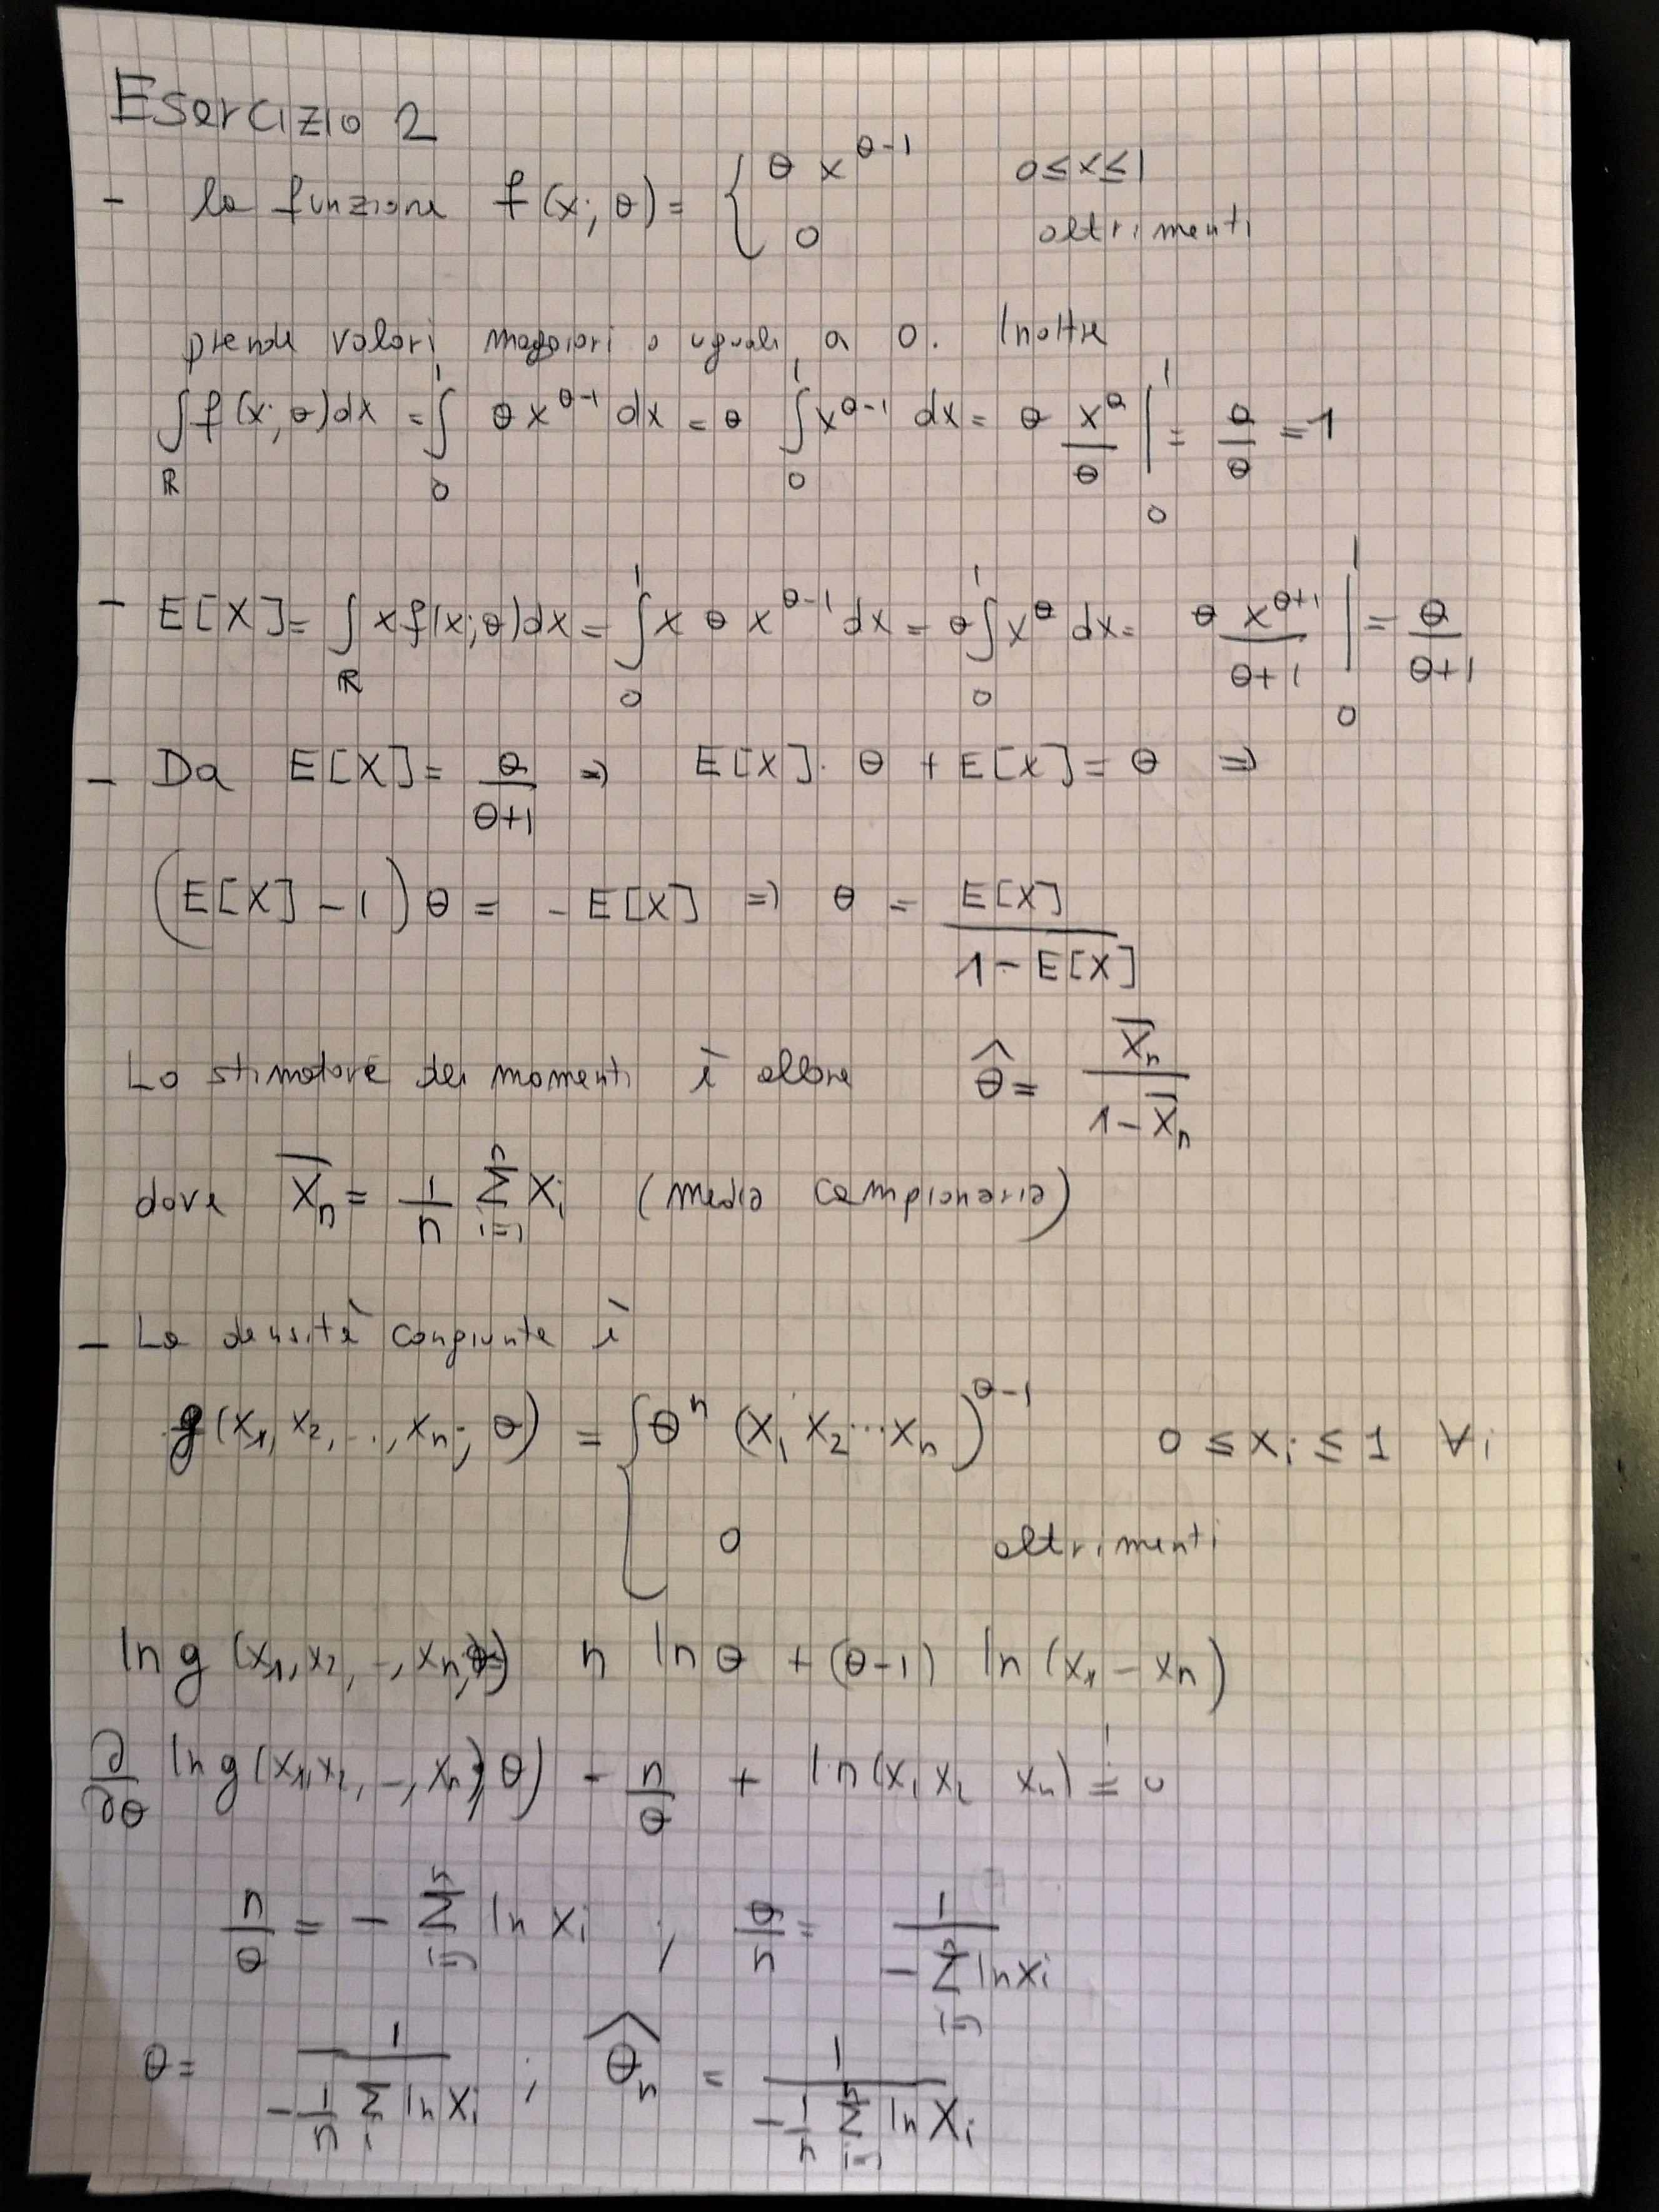 Esercizio 2
- la funzione f(x; θ) = { θ x^(θ-1) 0≤x≤1
0 altrimenti
prende valori maggiori o uguali a 0. Inoltre
∫_R f(x; θ)dx = ∫_0^1 θ x^(θ-1) dx = θ ∫_0^1 x^(θ-1) dx = θ x^θ/θ |_0^1 = θ/θ = 1
- E[X] = ∫_R x f(x; θ)dx = ∫_0^1 x θ x^(θ-1) dx = θ ∫_0^1 x^θ dx = θ x^(θ+1)/(θ+1) |_0^1 = θ/(θ+1)
- Da E[X] = θ/(θ+1) ⇒ E[X]. θ + E[X] = θ ⇒
(E[X] - 1) θ = - E[X] ⇒ θ = E[X]/(1 - E[X])
Lo stimatore dei momenti è allora θ̂ = X̄_n/(1 - X̄_n)
dove X̄_n = 1/n Σ_(i=1)^n X_i (media campionaria)
- La densità congiunta è
g(x_1, x_2, ..., x_n; θ) = { θ^n (x_1 x_2 ... x_n)^(θ-1) 0 ≤ x_i ≤ 1 ∀i
0 altrimenti
ln g (x_1, x_2, -, x_n; θ) n ln θ + (θ-1) ln (x_1 - x_n)
∂/∂θ ln g(x_1, x_2, -, x_n; θ) = n/θ + ln(x_1 x_2 x_n) =! 0
n/θ = - Σ_(i=1)^n ln x_i ; θ/n = 1/(- Σ_(i=1)^n ln x_i)
θ = 1/(- 1/n Σ_i ln x_i) ; θ̂_n = 1/(- 1/n Σ_(i=1)^n ln X_i)